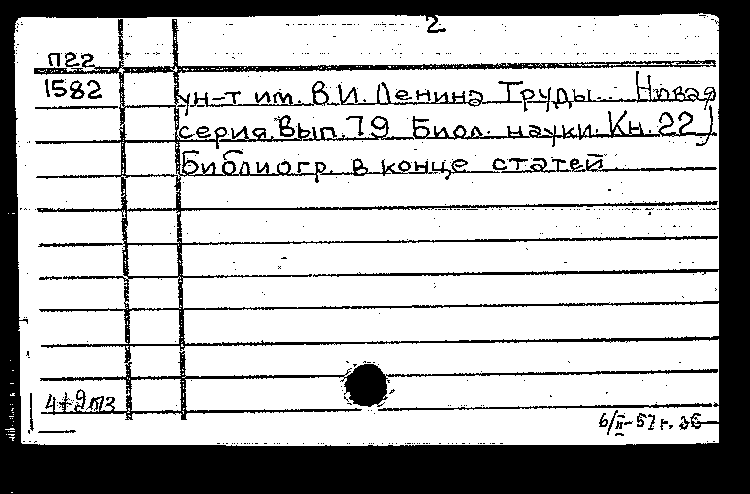 2
П22
1582
ун-т им. В.И. Ленина Труды... Новая
серия. Вып. 79 Биол. науки. Кн. 22)
Библиогр. в конце статей
6/II-57 г.